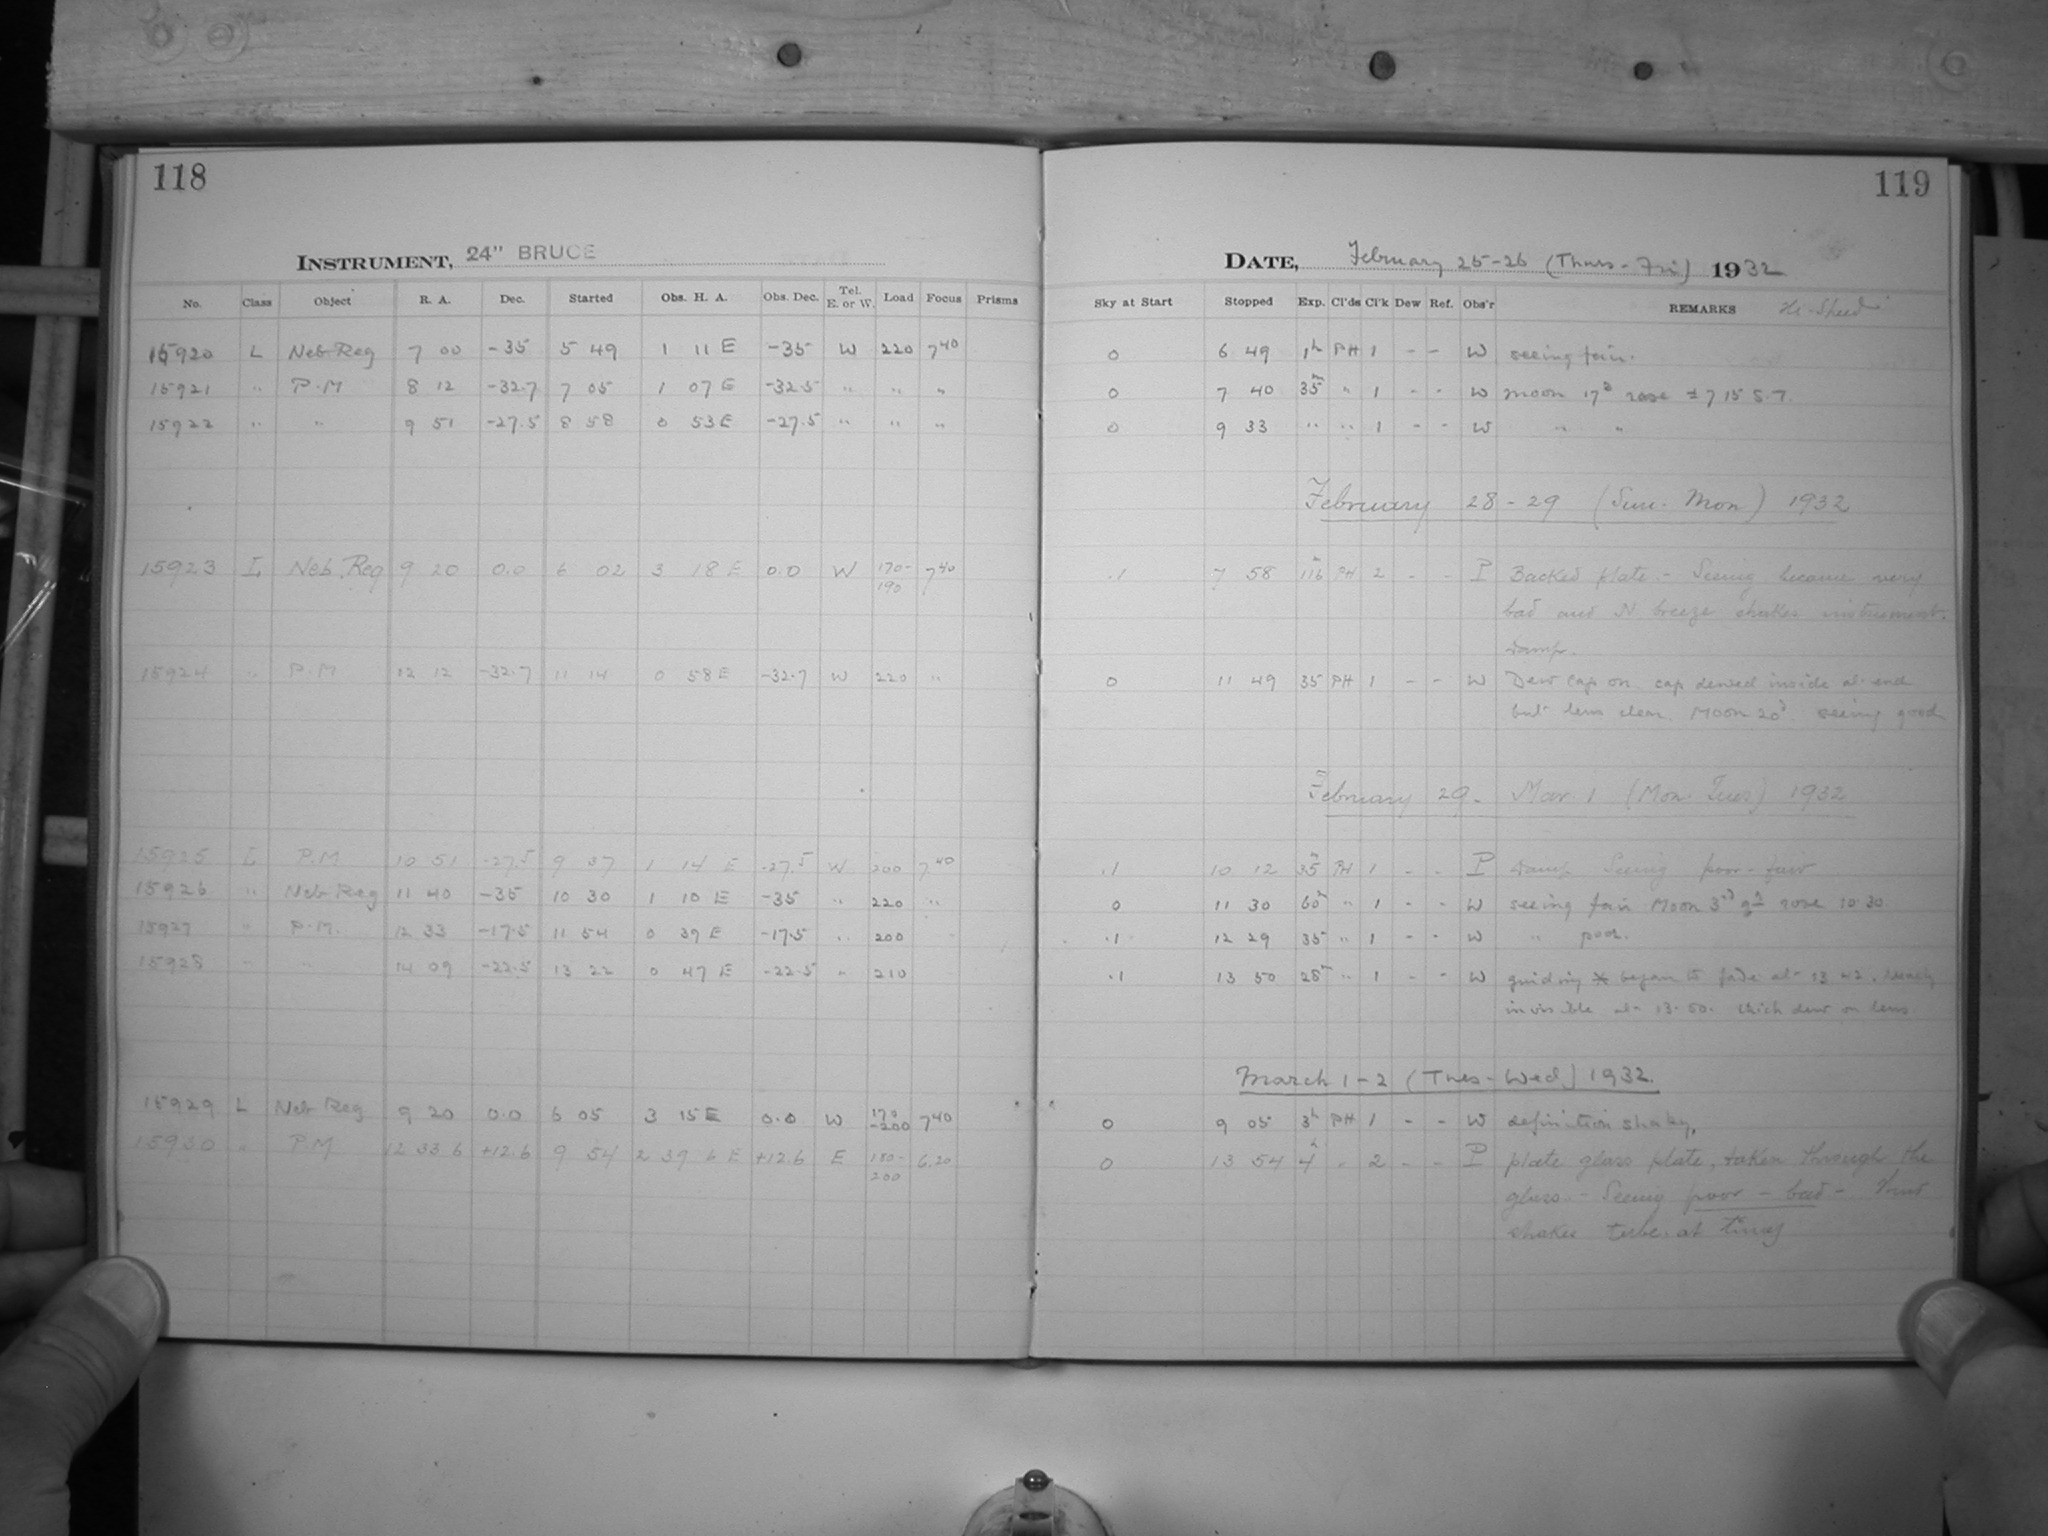 118
INSTRUMENT, 24" BRUCE
No. Class Object R. A. Dec. Started Obs. H. A. Obs. Dec. Tel. E. or W. Load Focus Prisms
15920 L Neb Reg 7 00 -35 5 49 1 11 E -35 W 220 7 40
15921 " P.M 8 12 -32.7 7 05 1 07 E -32.5 " " "
15922 " " 9 51 -27.5 8 58 0 53 E -27.5 " " "
15923 L Neb. Reg 9 20 0.0 6 02 3 18 E 0.0 W 170- 7 40
190
15924 " P.M 12 12 -32.7 11 14 0 58 E -32.7 W 220 "
15925 L P.M 10 51 -27.5 9 37 1 14 E -27.5 W 200 7 40
15926 " Neb Reg 11 40 -35 10 30 1 10 E -35 " 220 "
15927 " P.M. 12 33 -17.5 11 54 0 39 E -17.5 " 200
15928 " " 14 09 -22.5 13 22 0 47 E -22.5 " 210
15929 L Neb Reg 9 20 0.0 6 05 3 15 E 0.0 W 170 7 40
-200
15930 " P.M 12 33 6 +12.6 9 54 2 39 6 E +12.6 E 180- 6.20
200
119
DATE, February 25-26 (Thurs-Fri) 1932
Sky at Start Stopped Exp. Cl'ds Cl'k Dew Ref. Obs'r REMARKS Hi-Speed
0 6 49 1h PH 1 - - W seeing fair.
0 7 40 35m " 1 - - W moon 17d rose ± 7 15 S.T.
0 9 33 " " 1 - - W " "
February 28-29 (Sun. Mon) 1932
.1 7 58 116m PH 2 - - P Backed plate - Seeing became very
bad and N breeze shakes instrument.
Damp.
0 11 49 35 PH 1 - - W Dew cap on. cap dewed inside at end
but lens clear. Moon 20d. seeing good
February 29. Mar. 1 (Mon. Tues) 1932
.1 10 12 35m PH 1 - - P Damp Seeing poor-fair
0 11 30 60m " 1 - - W seeing fair Moon 3rd qr rose 10.30
.1 12 29 35 " 1 - - W " poor.
.1 13 50 28m " 1 - - W guiding * began to fade at 13 42. nearly
invisible at 13.50. thick dew on lens
March 1-2 (Tues-Wed) 1932.
0 9 05 3h PH 1 - - W definition shaky,
0 13 54 4h " 2 - - P plate glass plate, taken through the
glass. - Seeing poor - bad - Wind
shakes tube at times